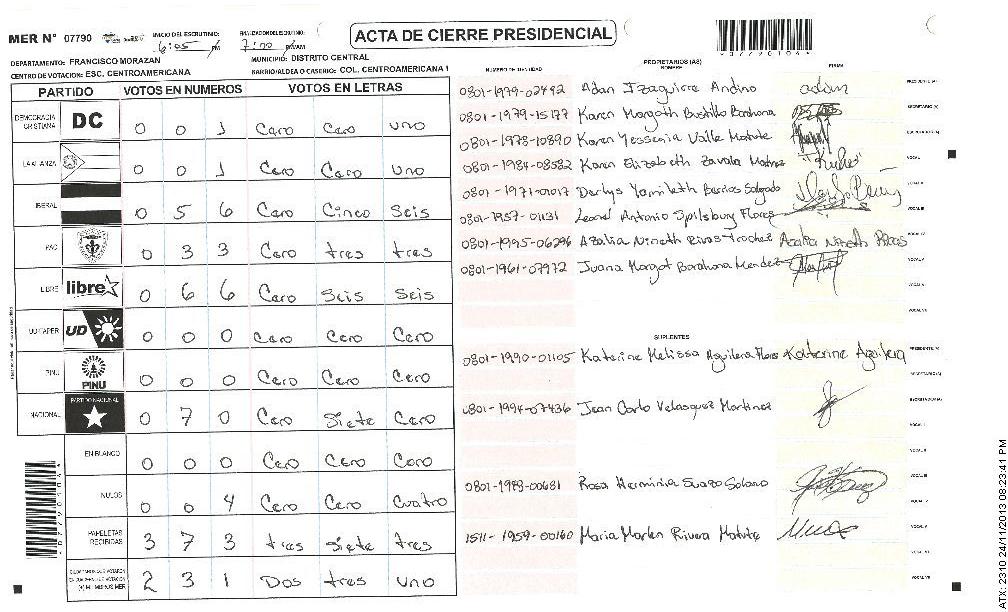 MER N° 07790 INICIO DEL ESCRUTINIO: 6:05 PM FINALIZACION DEL ESCRUTINIO: 7:20 PM/AM
ACTA DE CIERRE PRESIDENCIAL
DEPARTAMENTO: FRANCISCO MORAZAN MUNICIPIO: DISTRITO CENTRAL
CENTRO DE VOTACION: ESC. CENTROAMERICANA BARRIO/ALDEA O CASERIO: COL. CENTROAMERICANA 1
PARTIDO VOTOS EN NUMEROS VOTOS EN LETRAS
DEMOCRACIA CRISTIANA DC 0 0 1 Cero Cero uno
LA ALIANZA 0 0 1 Cero Cero Uno
LIBERAL 0 5 6 Cero Cinco Seis
PAC 0 3 3 Cero tres tres
LIBRE libre 0 6 6 Cero Seis Seis
UD FAPER UD 0 0 0 Cero Cero Cero
PINU PINU 0 0 0 Cero Cero Cero
NACIONAL PARTIDO NACIONAL 0 7 0 Cero Siete Cero
EN BLANCO 0 0 0 Cero Cero Cero
NULOS 0 0 4 Cero Cero Cuatro
PAPELETAS RECIBIDAS 3 7 3 tres Siete tres
2 3 1 Dos tres uno
NUMERO DE IDENTIDAD PROPIETARIOS (AS) NOMBRE FIRMA
0801-1979-02492 Adan Izaguirre Andino adan PRESIDENTE (A)
0801-1979-15177 Karen Margoth Bustillo Barahona SECRETARIO (A)
0801-1978-10890 Karen Yessenia Valle Matute ESCRUTADOR (A)
0801-1984-08532 Karen Elizabeth Zavala VOCAL I
0801-1971-01017 Darlys Yamileth Barrios Salgado VOCAL II
0801-1957-01131 Leonel Antonio Spilsbury Flores VOCAL III
0801-1995-06296 Azalia Nineth Rivas Azalia Nineth Rivas VOCAL IV
0801-1961-07972 Juana Margot Barahona Mendez VOCAL V
SUPLENTES
0801-1990-01105 Katerine Melissa Aguilera Flores Katerine Aguilera PRESIDENTE (A)
SECRETARIO (A)
0801-1994-07436 Jean Carlo Velasquez Martinez ESCRUTADOR (A)
VOCAL I
VOCAL II
0801-1983-00681 Rosa Herminia Suazo Solano VOCAL III
VOCAL IV
1511-1959-00160 Maria Marlen Rivera Matute VOCAL V
ATX: 2310 24/11/2013 08:23:41 PM